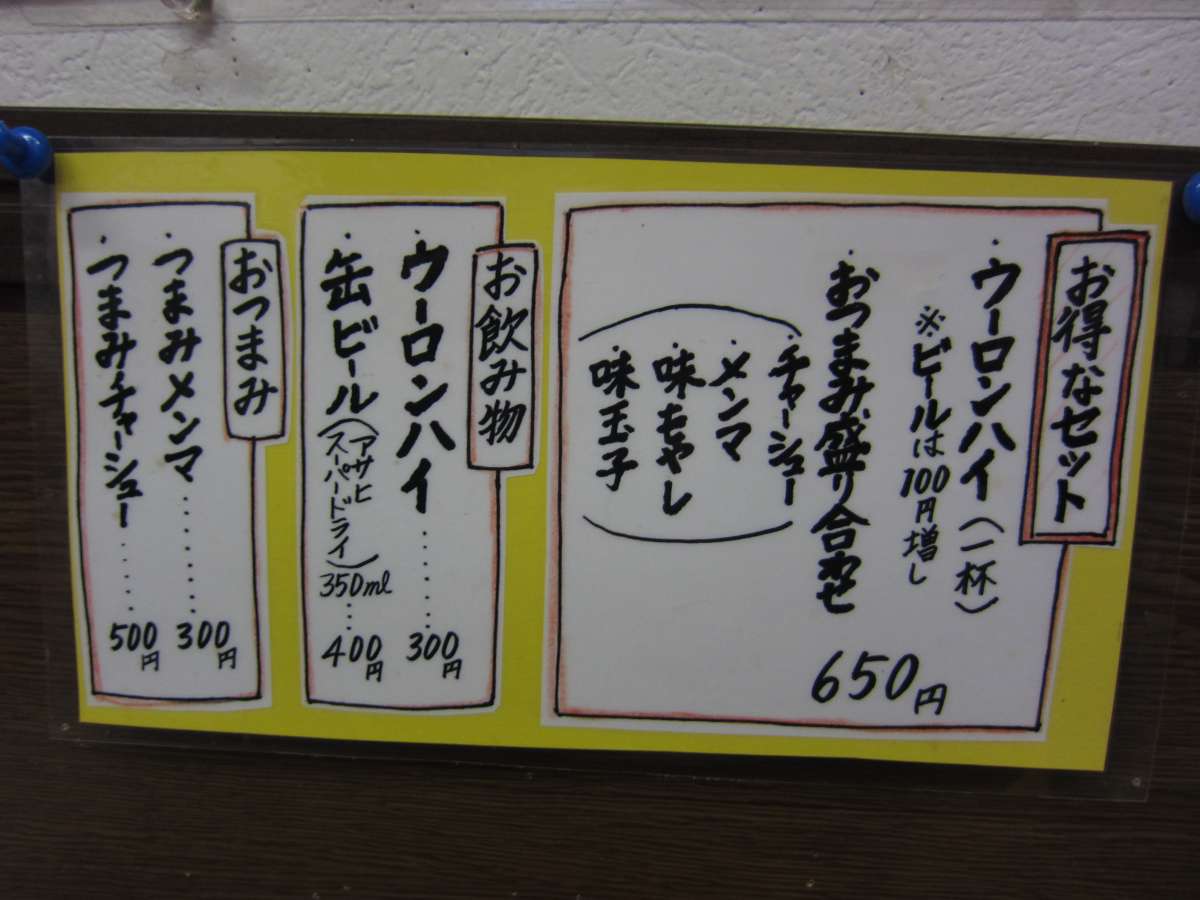 お得なセット
・ウーロンハイ(一杯)
※ビールは100円増し
・おつまみ盛り合わせ
・チャーシュー
・メンマ
・味もやし
・味玉子
650円
お飲み物
・ウーロンハイ………300円
・缶ビール(アサヒスーパードライ)350ml…400円
おつまみ
・つまみメンマ………300円
・つまみチャーシュー………500円